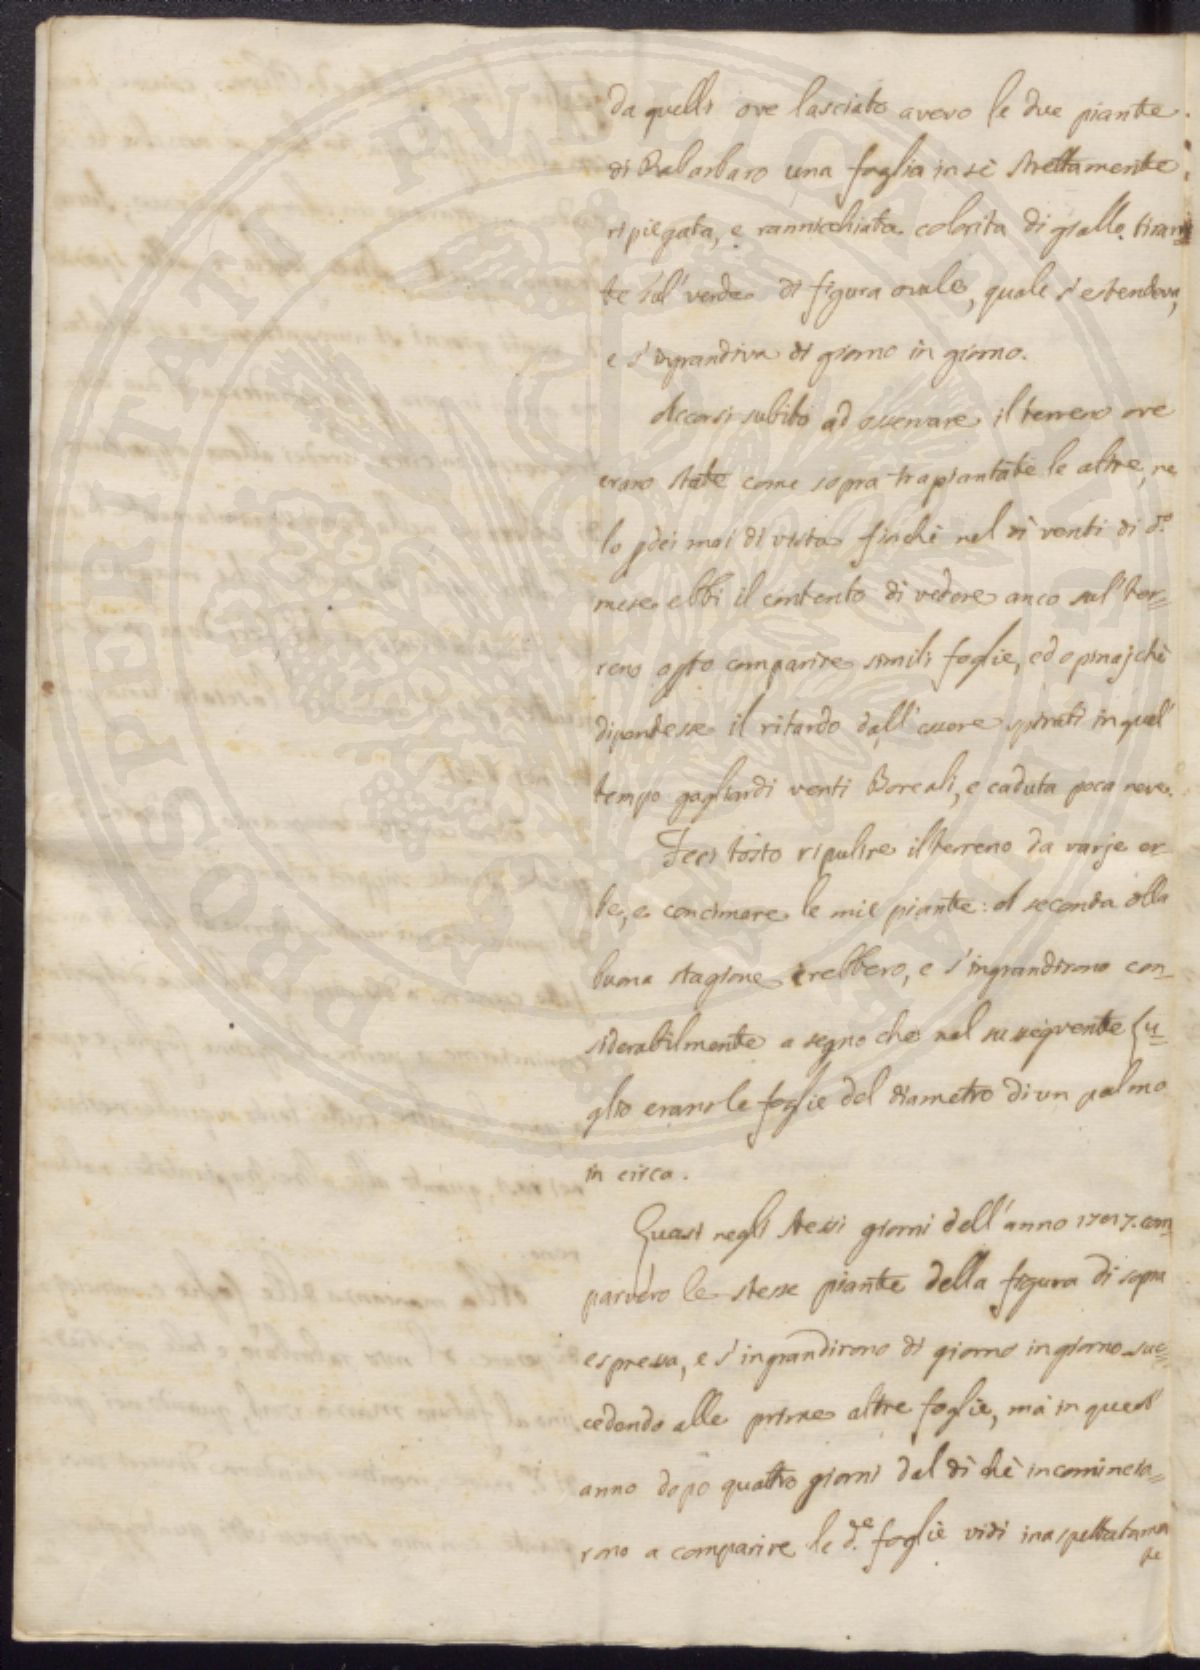 da quelli ove lasciato avevo le due piante
di Rabarbaro una foglia in sè strettamente
ripiegata, e rannicchiata colorita di giallo tiran=
te sul' verde di figura ovale, quale s'estendeva,
e s'ingrandiva di giorno in giorno.
Accorsi subito ad osservare il terreno ove
erano state come sopra trapiantate le altre, ne
lo pdei mai di vista finchè nel dì venti di d.º
mese ebbi il contento di vedere anco sul' ter=
reno comparire simili foglie, ed opinai chè
dipendesse il ritardo dall'essere spirati in quel'
tempo gagliardi venti Boreali, e caduta poca neve.
Feci tosto ripulire il terreno da varje er
be, e concimare le mie piante: A seconda della
buona stagione crebbero, e s'ingrandirono con=
siderabilmente a segno che nel susseguente Lu=
glio erano le foglie del diametro di un palmo
in circa.
Quasi negli stessi giorni dell'anno com
parvero le stesse piante della figura di sopra
espressa, e s'ingrandirono di giorno in giorno suc=
cedendo alle prime altre foglie, mà in quest'
anno dopo quattro giorni dal dì chè incomincia=
rono a comparire le d.e foglie vidi inaspettatamen
te
PROSPERITATI PVBLICAE